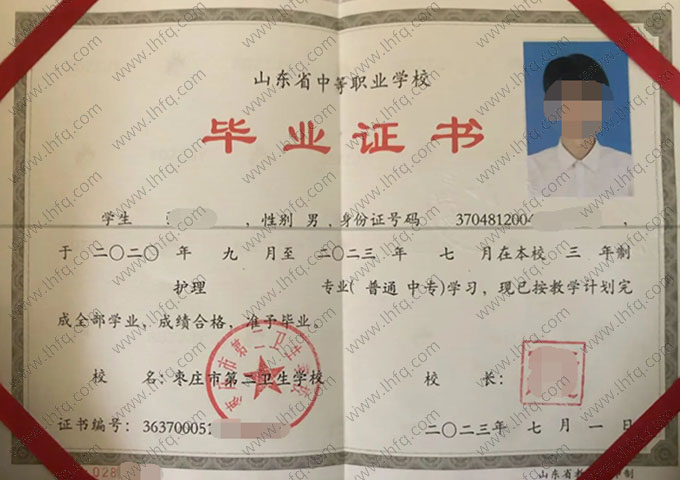 山东省中等职业学校
毕业证书
学生 ,性别 男 ,身份证号码 37048120 ,
于 二〇二〇 年 九 月至 二〇二三 年 七 月在本校 三 年制
护理 专业( 普通 中专)学习,现已按教学计划完
成全部学业,成绩合格,准予毕业。
校 名:枣庄市第二卫生学校 校 长:
证书编号: 36370005 二〇二三年 七 月 一 日
028
山东省 制
www.lhfq.com